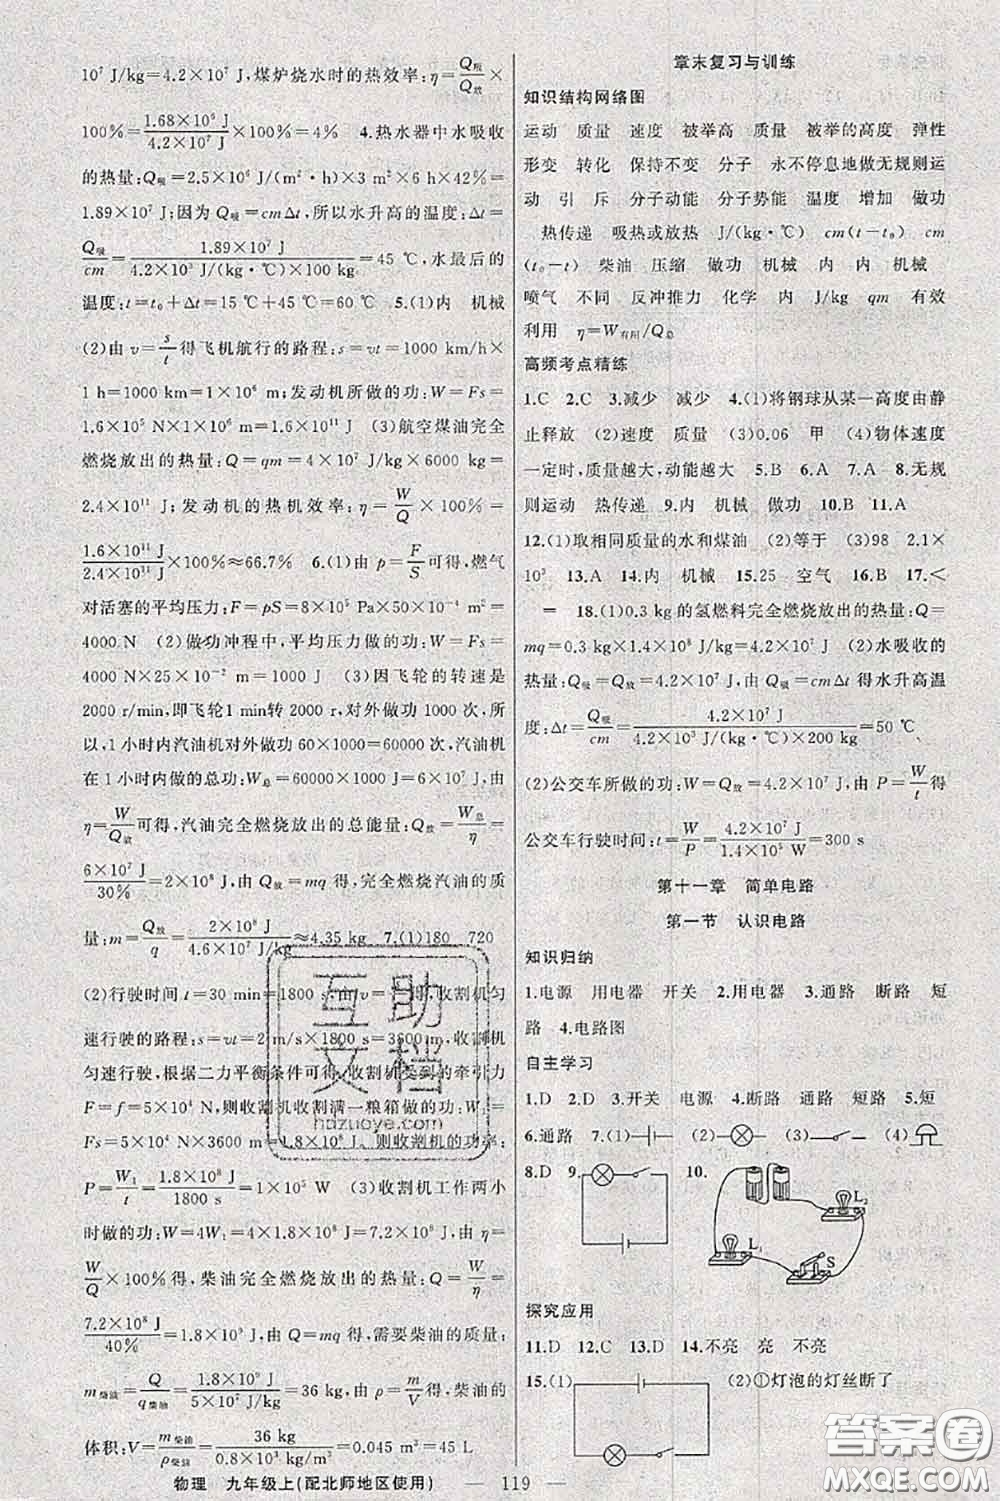 10⁷ J/kg=4.2×10⁷ J,煤炉烧水时的热效率:η=Q吸/Q放×
100%=1.68×10⁵ J/4.2×10⁷ J×100%=4%　4.热水器中水吸收
的热量:Q吸=2.5×10⁶ J/(m²·h)×3 m²×6 h×42%=
1.89×10⁷ J;因为Q吸=cmΔt,所以水升高的温度:Δt=
Q吸/cm=1.89×10⁷ J/4.2×10³ J/(kg·℃)×100 kg=45 ℃,水最后的
温度:t=t₀+Δt=15 ℃+45 ℃=60 ℃　5.(1)内　机械
(2)由v=s/t得飞机航行的路程:s=vt=1000 km/h×
1 h=1000 km=1×10⁶ m;发动机所做的功:W=Fs=
1.6×10⁵ N×1×10⁶ m=1.6×10¹¹ J　(3)航空煤油完全
燃烧放出的热量:Q=qm=4×10⁷ J/kg×6000 kg=
2.4×10¹¹ J;发动机的热机效率:η=W/Q×100%=
1.6×10¹¹ J/2.4×10¹¹ J×100%≈66.7%　6.(1)由p=F/S可得,燃气
对活塞的平均压力:F=pS=8×10⁵ Pa×50×10⁻⁴ m²=
4000 N　(2)做功冲程中,平均压力做的功:W=Fs=
4000 N×25×10⁻² m=1000 J　(3)因飞轮的转速是
2000 r/min,即飞轮1 min转2000 r,对外做功1000次,所
以,1小时内汽油机对外做功60×1000=60000次,汽油机
在1小时内做的总功:W总=60000×1000 J=6×10⁷ J,由
η=W/Q放可得,汽油完全燃烧放出的总能量:Q放=W总/η=
6×10⁷ J/30%=2×10⁸ J,由Q放=mq得,完全燃烧汽油的质
量:m=Q放/q=2×10⁸ J/4.6×10⁷ J/kg≈4.35 kg　7.(1)180　720
(2)行驶时间t=30 min=1800 s,收割机匀
速行驶的路程:s=vt=2 m/s×1800 s=3600 m,收割机
匀速行驶,根据二力平衡条件可得,收割机受到的牵引力
F=f=5×10⁴ N,则收割机收割满一粮箱做的功:W₁=
Fs=5×10⁴ N×3600 m=1.8×10⁸ J,则收割机的功率:
P=W₁/t=1.8×10⁸ J/1800 s=1×10⁵ W　(3)收割机工作两小
时做的功:W=4W₁=4×1.8×10⁸ J=7.2×10⁸ J,由η=
W/Q×100%得,柴油完全燃烧放出的热量:Q=W/η=
7.2×10⁸ J/40%=1.8×10⁹ J,由Q=mq得,需要柴油的质量:
m柴油=Q/q柴油=1.8×10⁹ J/5×10⁷ J/kg=36 kg,由ρ=m/V得,柴油的
体积:V=m柴油/ρ柴油=36 kg/0.8×10³ kg/m³=0.045 m³=45 L
章末复习与训练
知识结构网络图
运动　质量　速度　被举高　质量　被举的高度　弹性
形变　转化　保持不变　分子　永不停息地做无规则运
动　引　斥　分子动能　分子势能　温度　增加　做功
热传递　吸热或放热　J/(kg·℃)　cm(t-t₀)　cm
(t₀-t)　柴油　压缩　做功　机械　内　内　机械
喷气　不同　反冲推力　化学　内　J/kg　qm　有效
利用　η=W有用/Q总
高频考点精练
1.C　2.C　3.减少　减少　4.(1)将钢球从某一高度由静
止释放　(2)速度　质量　(3)0.06　甲　(4)物体速度
一定时,质量越大,动能越大　5.B　6.A　7.A　8.无规
则运动　热传递　9.内　机械　做功　10.B　11.A
12.(1)取相同质量的水和煤油　(2)等于　(3)98　2.1×
10³　13.A　14.内　机械　15.25　空气　16.B　17.<
=　18.(1)0.3 kg的氢燃料完全燃烧放出的热量:Q=
mq=0.3 kg×1.4×10⁸ J/kg=4.2×10⁷ J　(2)水吸收的
热量:Q吸=Q放=4.2×10⁷ J,由Q吸=cmΔt得水升高温
度:Δt=Q吸/cm=4.2×10⁷ J/4.2×10³ J/(kg·℃)×200 kg=50 ℃
(2)公交车所做的功:W=Q放=4.2×10⁷ J,由P=W/t得
公交车行驶时间:t=W/P=4.2×10⁷ J/1.4×10⁵ W=300 s
第十一章　简单电路
第一节　认识电路
知识归纳
1.电源　用电器　开关　2.用电器　3.通路　断路　短
路　4.电路图
自主学习
1.D　2.D　3.开关　电源　4.断路　通路　短路　5.短
6.通路　7.(1)　(2)　(3)　(4)
8.D　9.　10.
L₂
L₁
S
探究应用
11.D　12.C　13.D　14.不亮　亮　不亮
15.(1)　(2)①灯泡的灯丝断了
物理　九年级上(配北师地区使用)　119
互助
文档
hdzuoye.com
答案圈
MXQE.COM